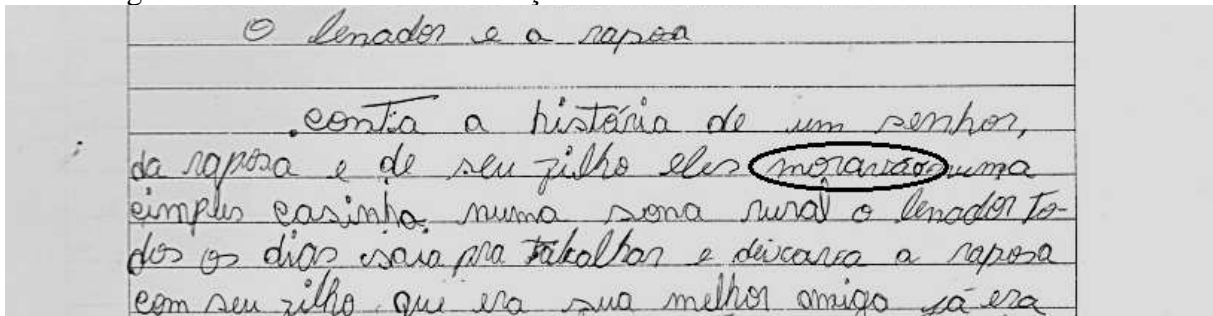 O lenador e a raposa
conta a história de um senhor,
da raposa e de seu filho eles moravão numa
cimples casinha numa sona rural o lenador to-
dos os dias saia pra tabalhar e deicava a raposa
com seu filho que era sua melhor amiga já era